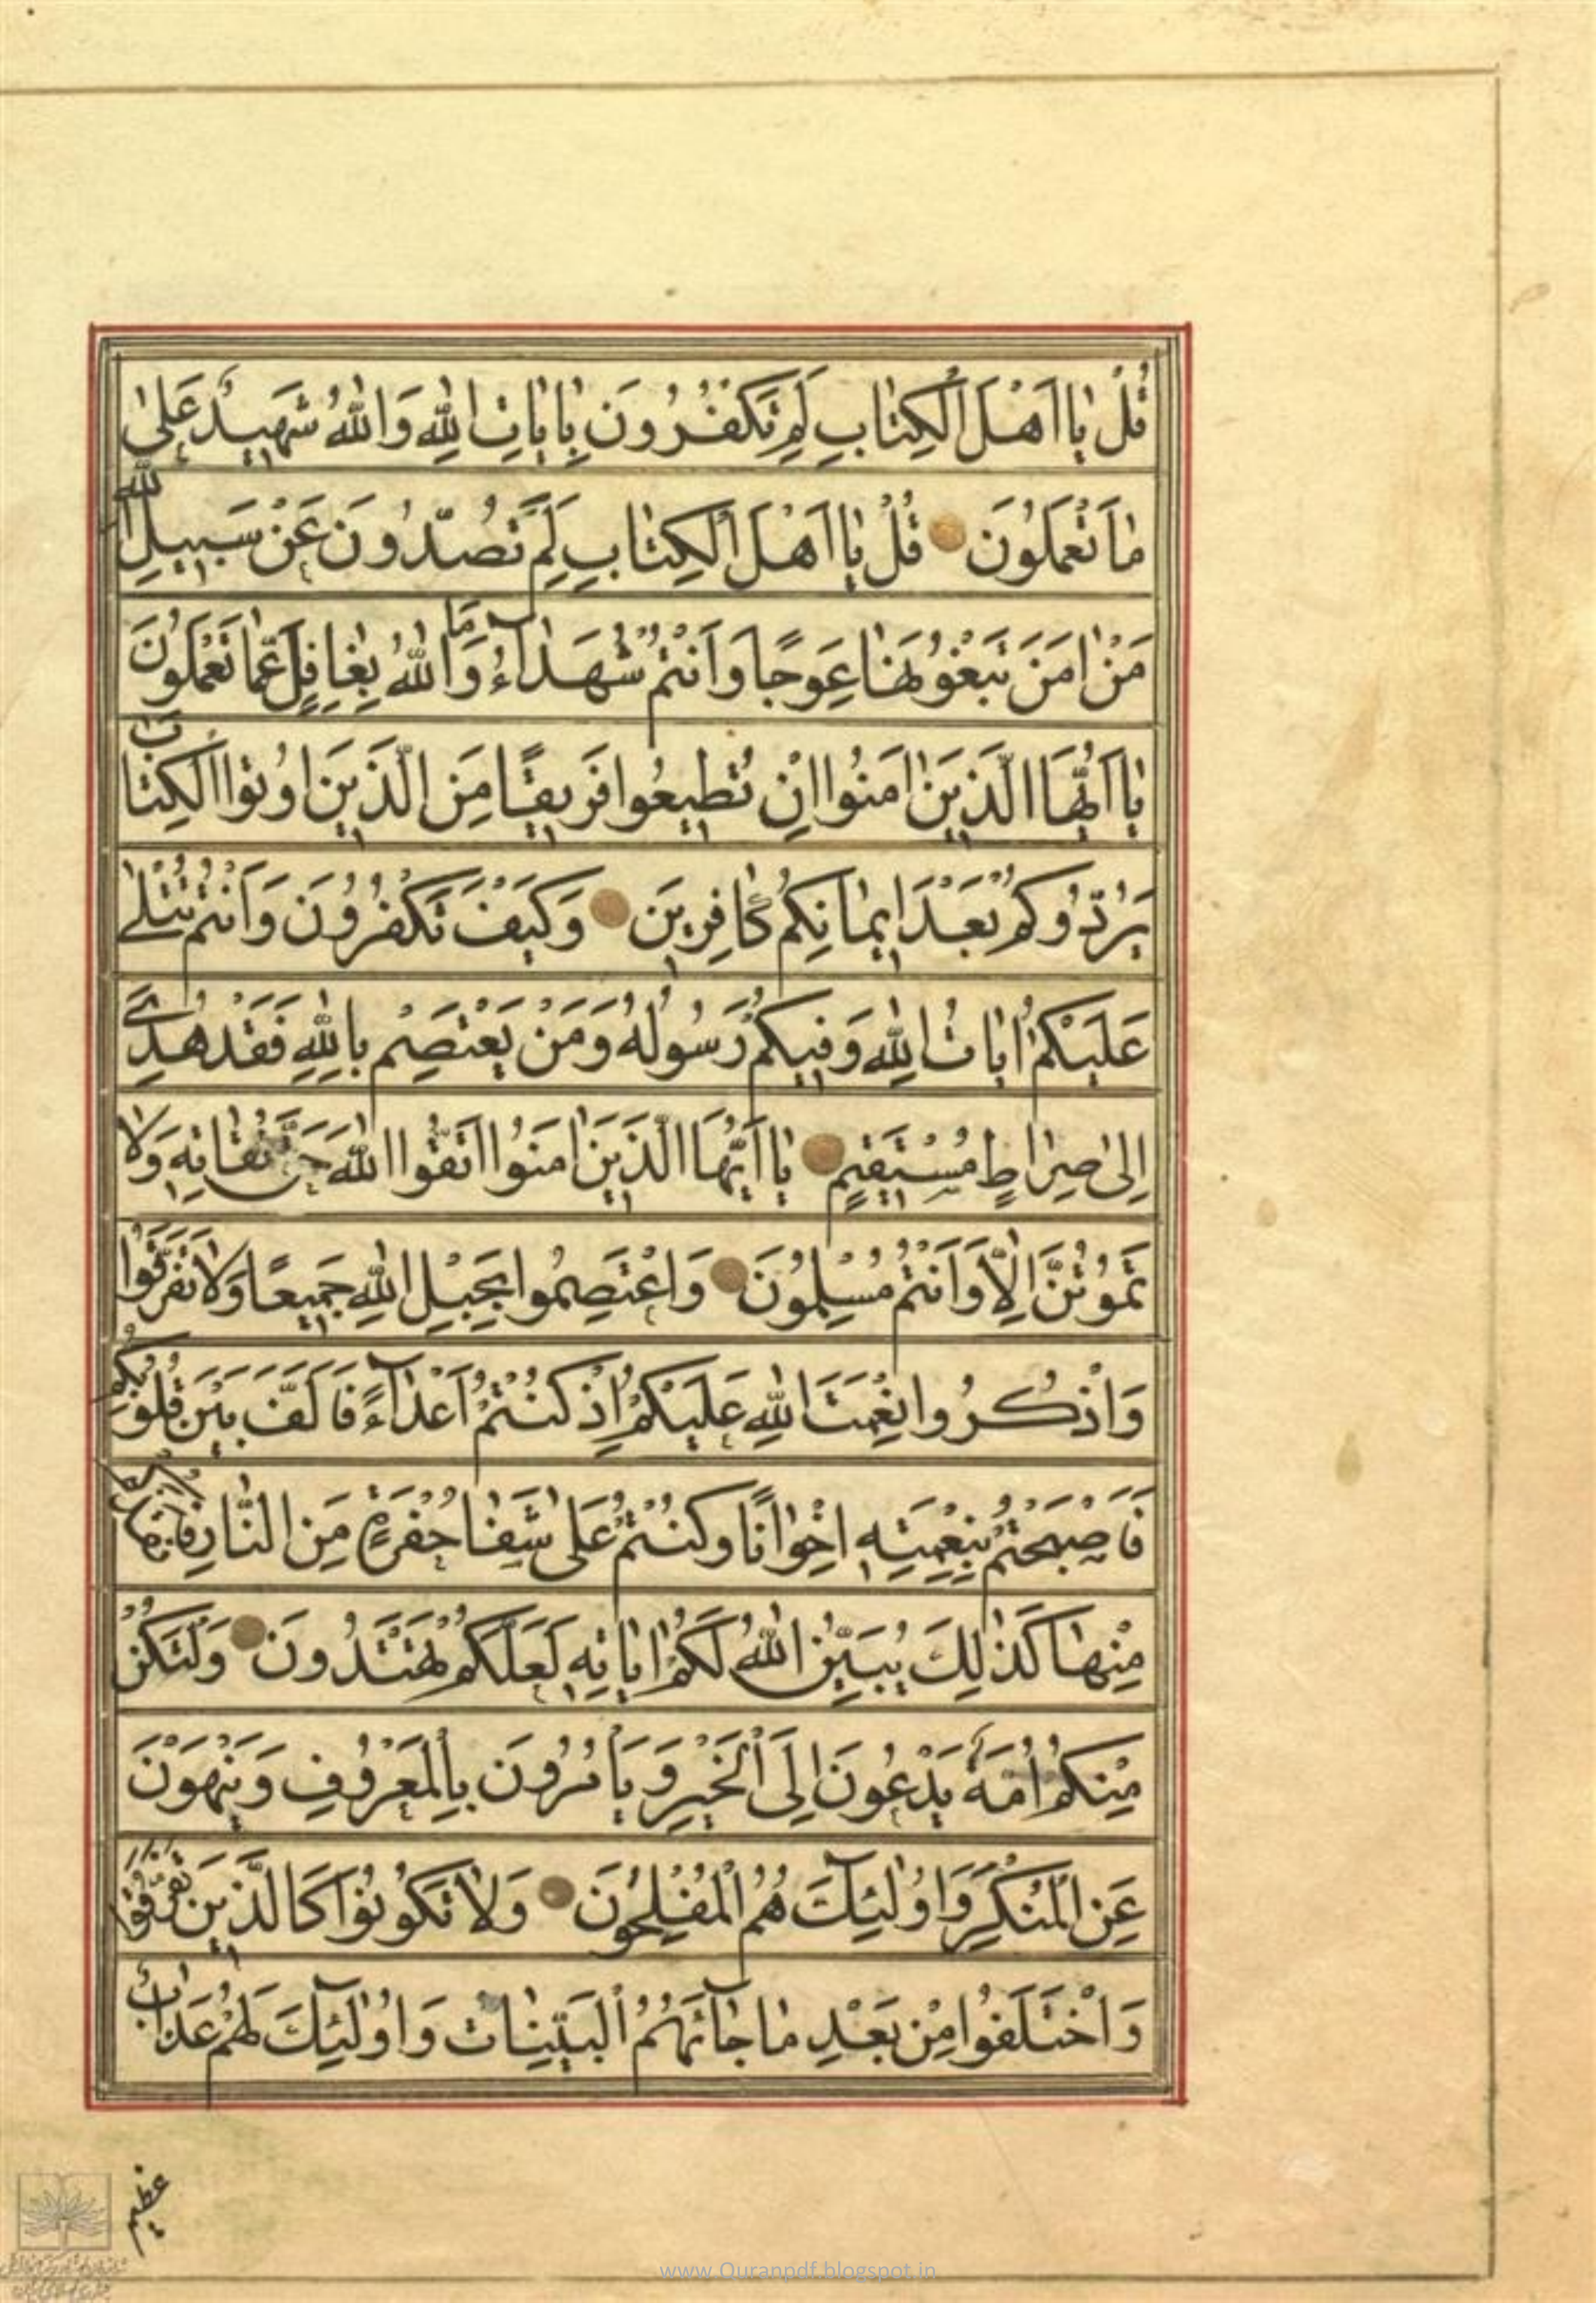 قُلْ يٰا اَهْلَ الْكِتٰابِ لِمَ تَكْفُرُونَ بِاٰيٰاتِ اللّٰهِ وَاللّٰهُ شَهِيدٌ عَلىٰ
مٰا تَعْمَلُونَ قُلْ يٰا اَهْلَ الْكِتٰابِ لِمَ تَصُدُّونَ عَنْ سَبِيلِ اللّٰهِ
مَنْ اٰمَنَ تَبْغُونَهٰا عِوَجًا وَاَنْتُمْ شُهَدٰٓاءُ وَمَا اللّٰهُ بِغٰافِلٍ عَمّٰا تَعْمَلُونَ
يٰا اَيُّهَا الَّذِينَ اٰمَنُوا اِنْ تُطِيعُوا فَرِيقًا مِنَ الَّذِينَ اُوتُوا الْكِتٰابَ
يَرُدُّوكُمْ بَعْدَ اِيمٰانِكُمْ كٰافِرِينَ وَكَيْفَ تَكْفُرُونَ وَاَنْتُمْ تُتْلىٰ
عَلَيْكُمْ اٰيٰاتُ اللّٰهِ وَفِيكُمْ رَسُولُهُ وَمَنْ يَعْتَصِمْ بِاللّٰهِ فَقَدْ هُدِيَ
اِلىٰ صِرٰاطٍ مُسْتَقِيمٍ يٰا اَيُّهَا الَّذِينَ اٰمَنُوا اتَّقُوا اللّٰهَ حَقَّ تُقٰاتِهِ وَلٰا
تَمُوتُنَّ اِلّٰا وَاَنْتُمْ مُسْلِمُونَ وَاعْتَصِمُوا بِحَبْلِ اللّٰهِ جَمِيعًا وَلٰا تَفَرَّقُوا
وَاذْكُرُوا نِعْمَتَ اللّٰهِ عَلَيْكُمْ اِذْ كُنْتُمْ اَعْدٰٓاءً فَاَلَّفَ بَيْنَ قُلُوبِكُمْ
فَاَصْبَحْتُمْ بِنِعْمَتِهِ اِخْوٰانًا وَكُنْتُمْ عَلىٰ شَفٰا حُفْرَةٍ مِنَ النّٰارِ فَاَنْقَذَكُمْ
مِنْهٰا كَذٰلِكَ يُبَيِّنُ اللّٰهُ لَكُمْ اٰيٰاتِهِ لَعَلَّكُمْ تَهْتَدُونَ وَلْتَكُنْ
مِنْكُمْ اُمَّةٌ يَدْعُونَ اِلَى الْخَيْرِ وَيَأْمُرُونَ بِالْمَعْرُوفِ وَيَنْهَوْنَ
عَنِ الْمُنْكَرِ وَاُولٰٓئِكَ هُمُ الْمُفْلِحُونَ وَلٰا تَكُونُوا كَالَّذِينَ تَفَرَّقُوا
وَاخْتَلَفُوا مِنْ بَعْدِ مٰا جٰٓاءَهُمُ الْبَيِّنٰاتُ وَاُولٰٓئِكَ لَهُمْ عَذٰابٌ
عظيم
www.Quranpdf.blogspot.in